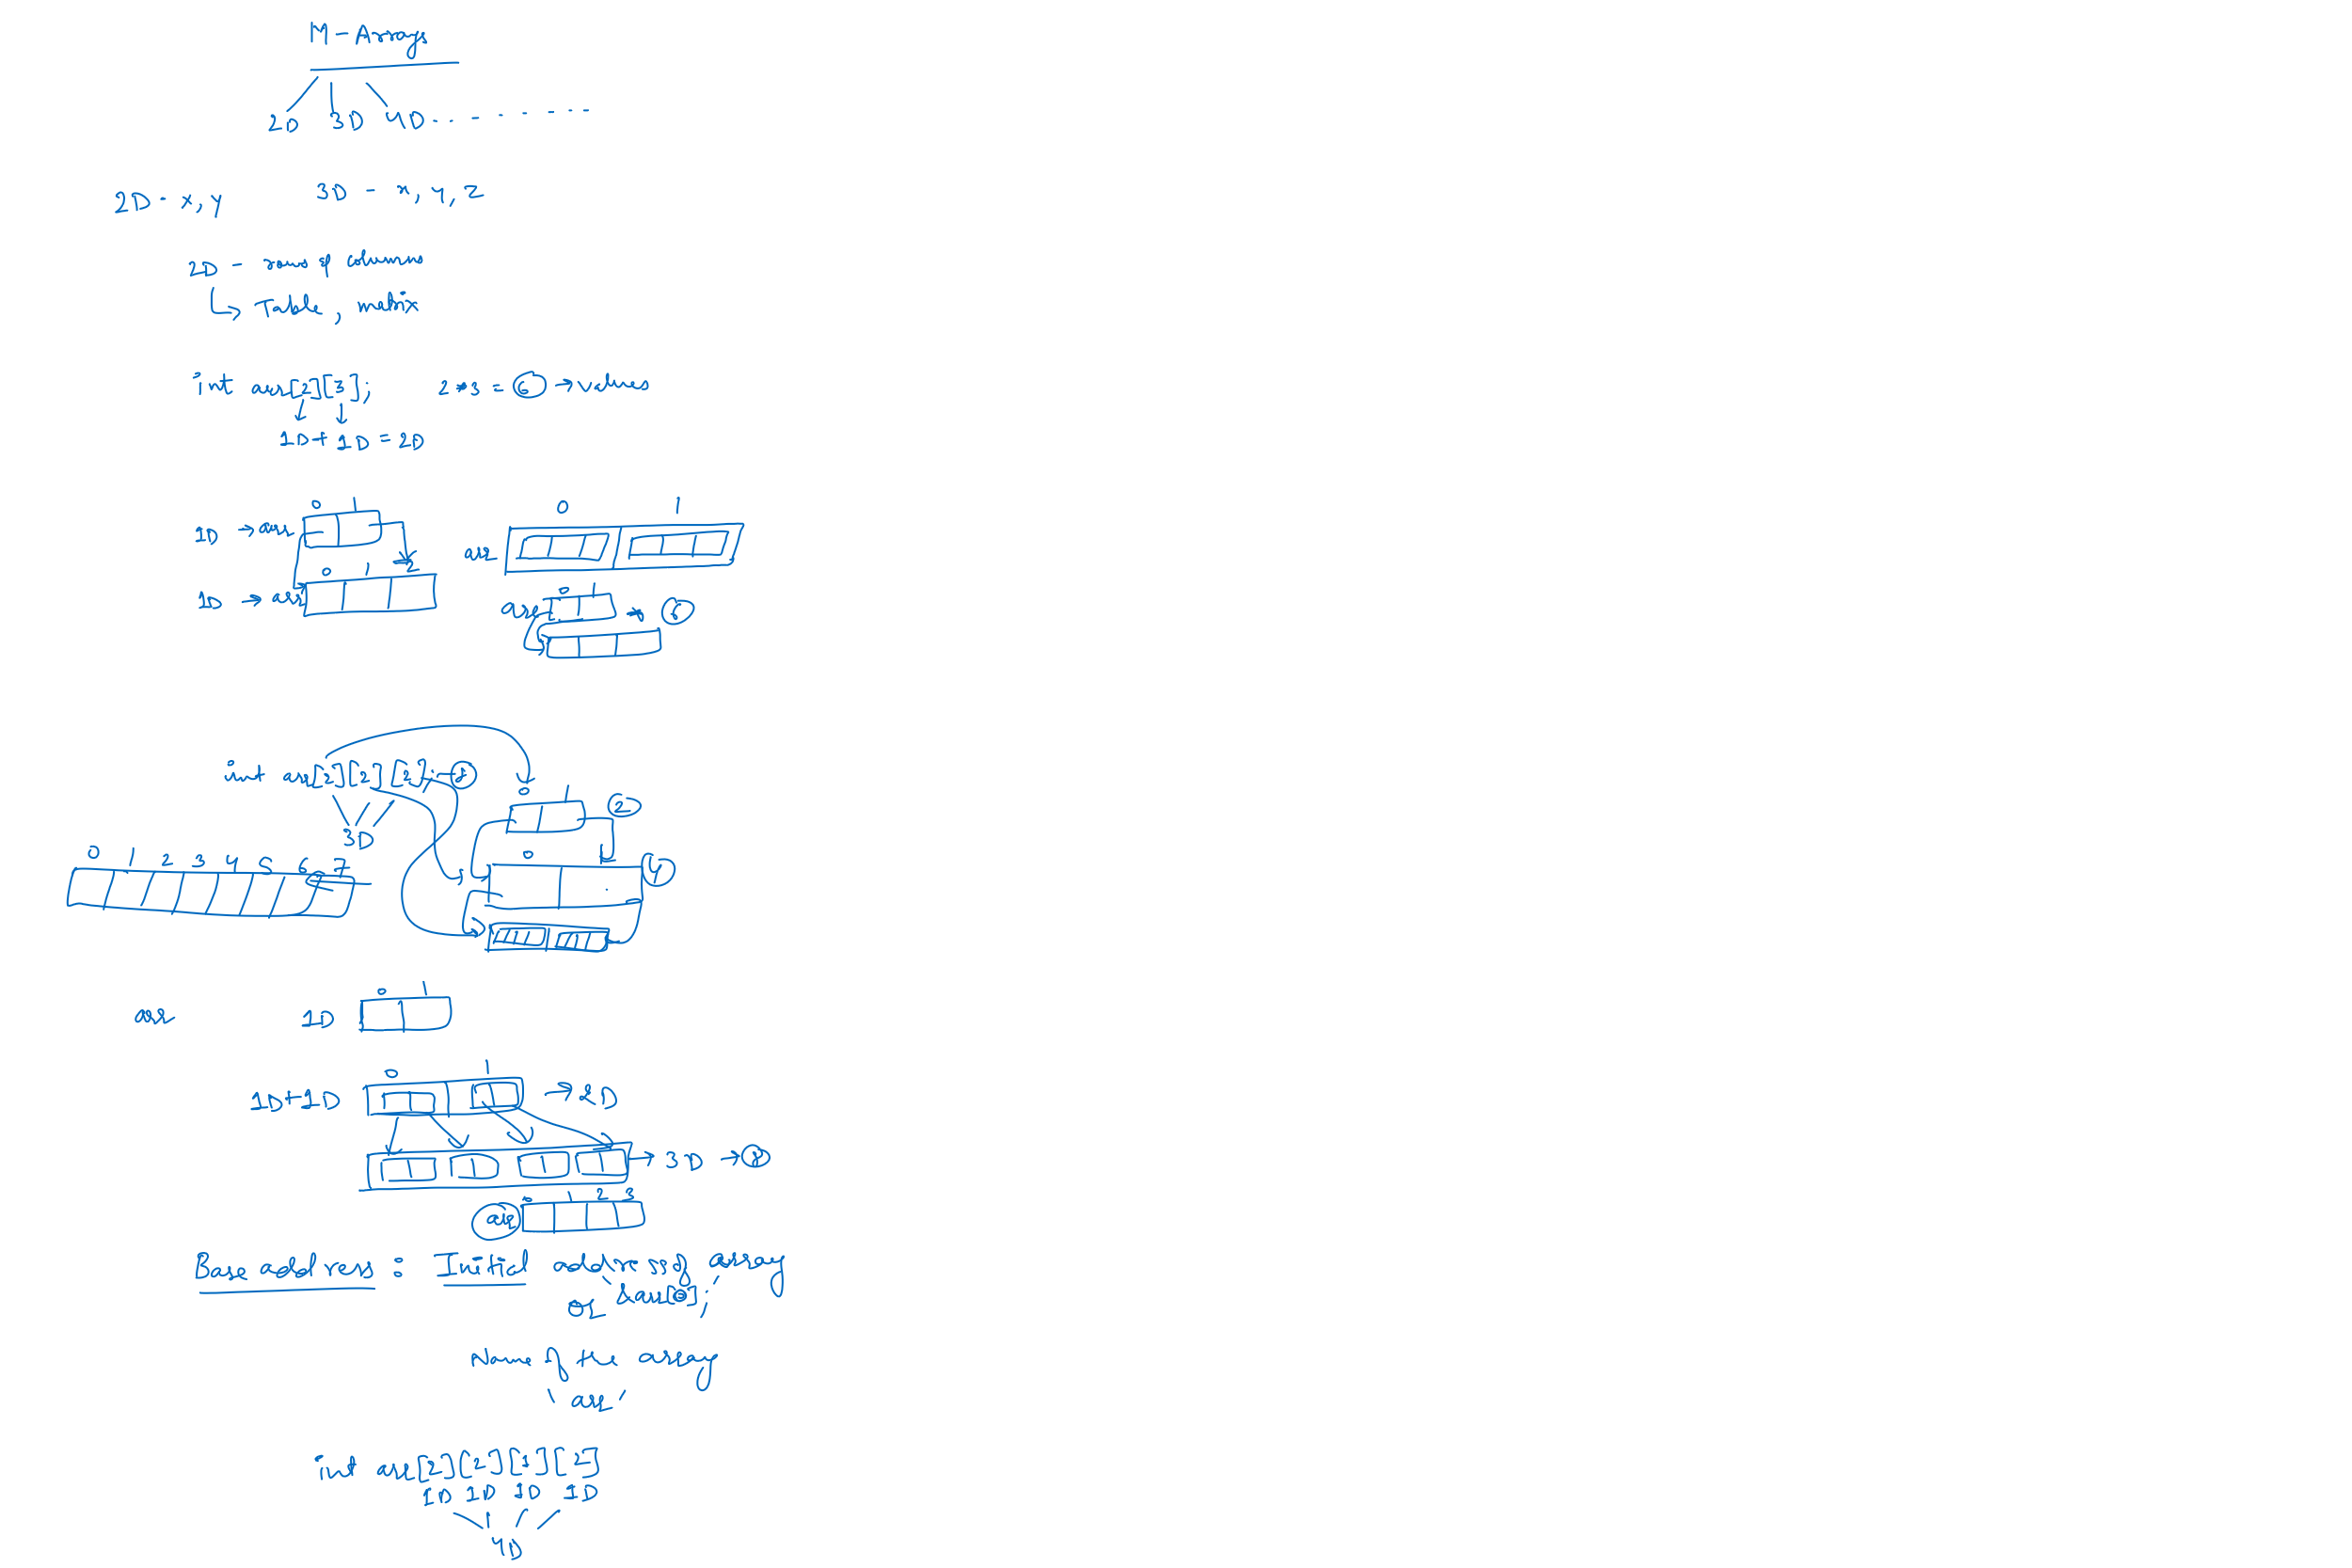 M-Arrays
2D 3D 4D.. - - - - - -
2D - x, y 3D - x, y, z
2D - rows & columns
↳ Table, matrix
int arr[2][3]; 2*3 = 6 → values
1D + 1D = 2D
0 1
1D → arr
0 1 2
1D → arr
0 1
arr
0 1
arr * 6
int arr[2][2][2]; - 8
3D
0 1 2 3 4 5 6 7
0 1 2
0 1 4
arr 1D 0 1
0 1
1D+1D → 2D
→ 3D → 8
0 1 2 3
arr
Base address : Initial address of array
or '&arr[0];'
Name of the array
'arr'
int arr[2][2][1][2]
1D 1D 1D 1D
4D